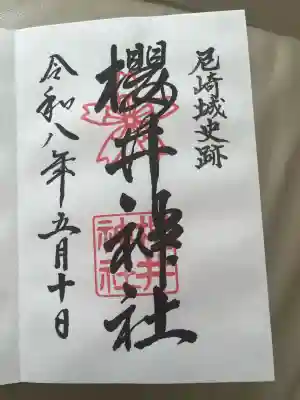 尼崎城史跡
櫻井神社
櫻井
神社
令和八年五月十日